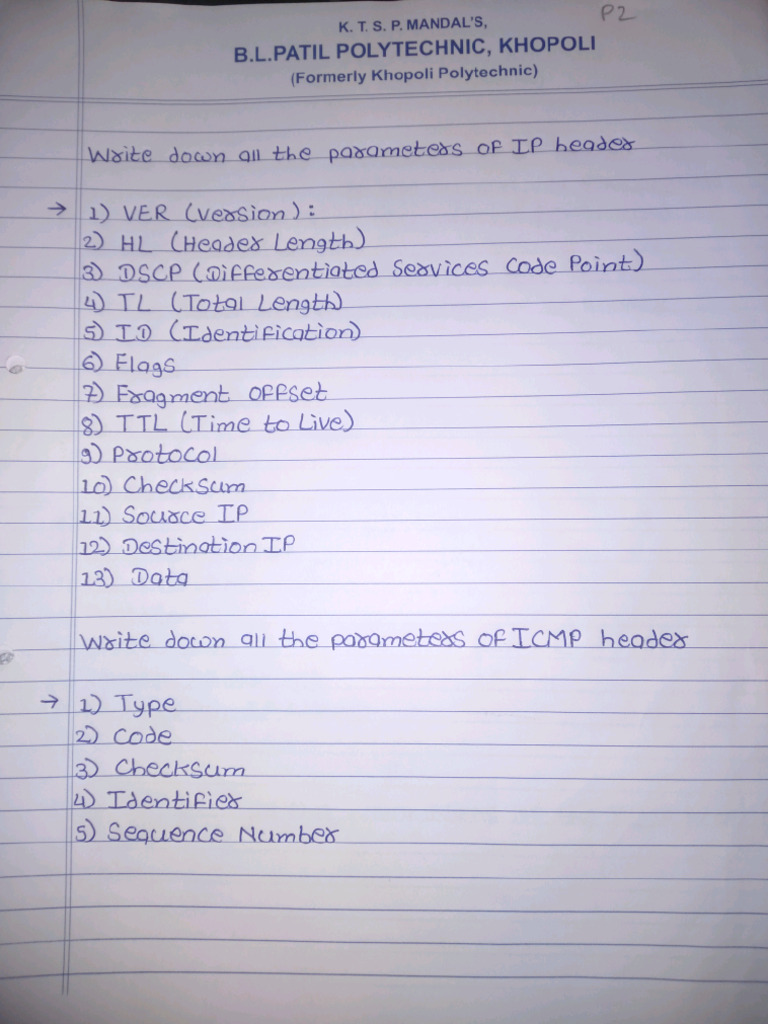 P2
K. T. S. P. MANDAL'S,
B.L.PATIL POLYTECHNIC, KHOPOLI
(Formerly Khopoli Polytechnic)
Write down all the parameters of IP header
→ 1) VER (Version):
2) HL (Header Length)
3) DSCP (Differentiated Services Code Point)
4) TL (Total Length)
5) ID (Identification)
6) Flags
7) Fragment Offset
8) TTL (Time to Live)
9) Protocol
10) Checksum
11) Source IP
12) Destination IP
13) Data
Write down all the parameters of ICMP header
→ 1) Type
2) Code
3) Checksum
4) Identifier
5) Sequence Number